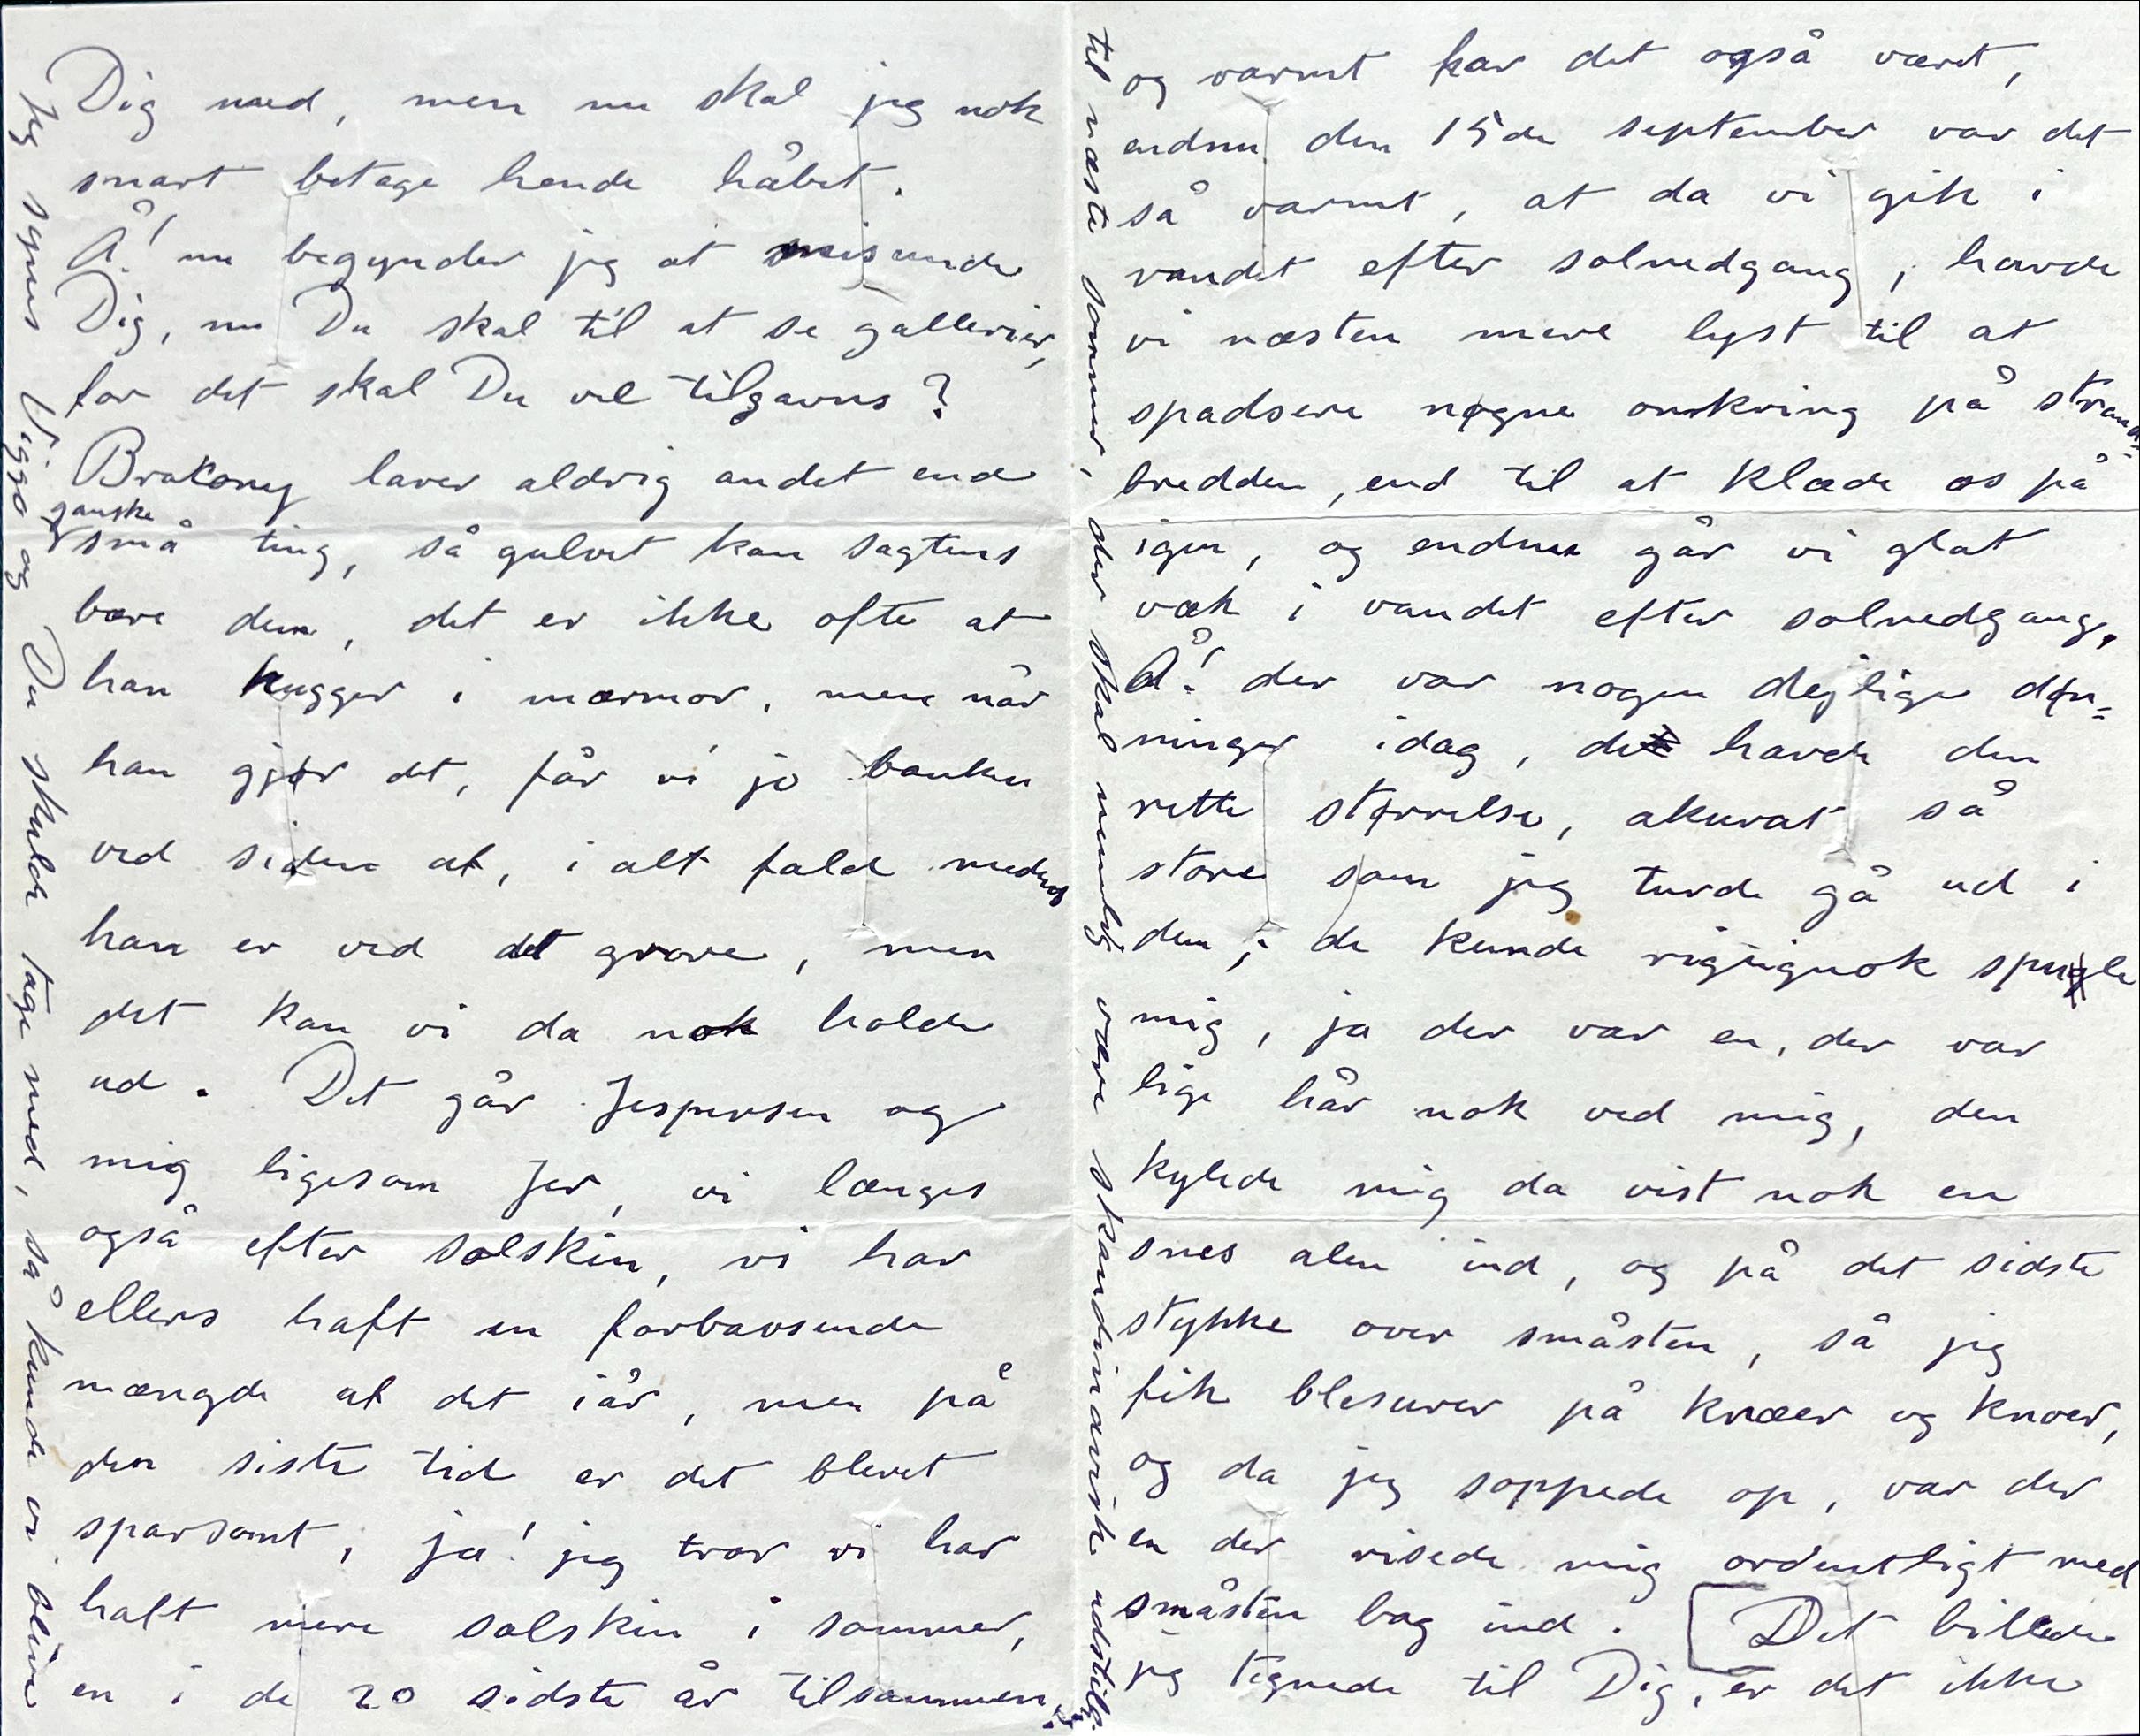 Dig med, men nu skal jeg nok
snart betage hende håbet.
Å! nu begynder jeg at misunde
Dig, nu Du skal til at se gallerier,
for det skal Du vel tilgavns?
Brakony laver aldrig andet end
ganske
små ting, så gulvet kan sagtens
bære dem, det er ikke ofte at
han hugger i marmor, men når
han gjør det, får vi jo banken
ved siden af, i alt fald medens
han er ved det grove, men
det kan vi da nok holde
ud. Det går Jespersen og
mig ligesom Jer, vi længes
også efter solskin, vi har
ellers haft en forbavsende
mængde af det iår, men på
den siste tid er det blevet
sparsomt, ja! jeg tror vi har
haft mere solskin i sommer,
en i de 20 sidste år tilsammen,
Jeg synes Viggo og Du skulde tage med, så kunde vi blive
til næste sommer, der skal nemlig være skandinavisk udstilg.
og varmt har det også været,
endnu den 15de september var det
så varmt, at da vi gik i
vandet efter solnedgang, havde
vi næsten mere lyst til at
spadsere nøgne omkring på strand-
bredden, end til at klæde os på
igen, og endnu går vi glat
væk i vandet efter solnedgang,
Å! der var nogen dejlige døn=
ninger idag, de havde den
rette størrelse, akurat så
store som jeg turde gå ud i
dem; de kunde rigtignok spule
mig, ja der var en, der var
lige hår nok ved mig, den
kylede mig da vist nok en
snes alen ind, og på det sidste
stykke over småsten, så jeg
fik blesurer på knæer og knoer,
og da jeg soppede op, var der
en der risede mig ordentligt med
småsten bag ind. [Det billede
jeg tegnede til Dig, er det ikke